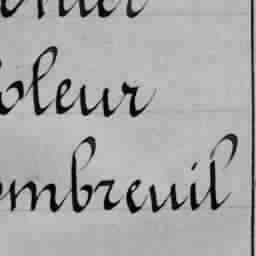 oleur
ombreuil